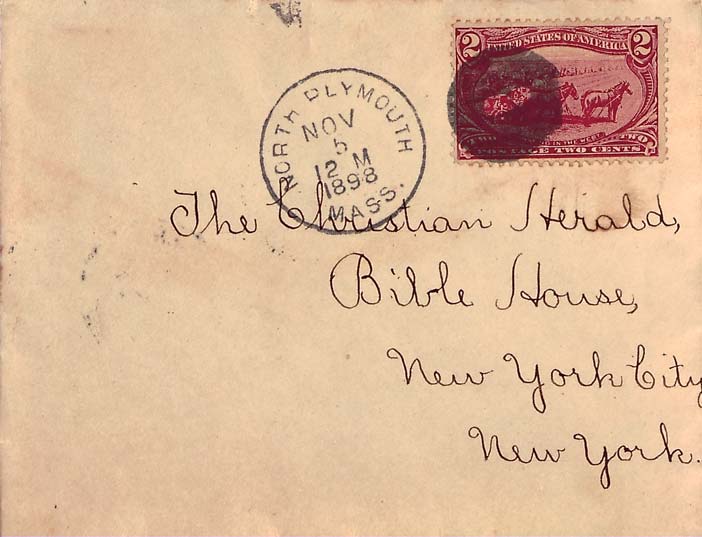 NORTH PLYMOUTH
NOV
5
12 M
1898
MASS.
2 UNITED STATES OF AMERICA 2
POSTAGE TWO CENTS
The Christian Herald,
Bible House,
New York City
New York.